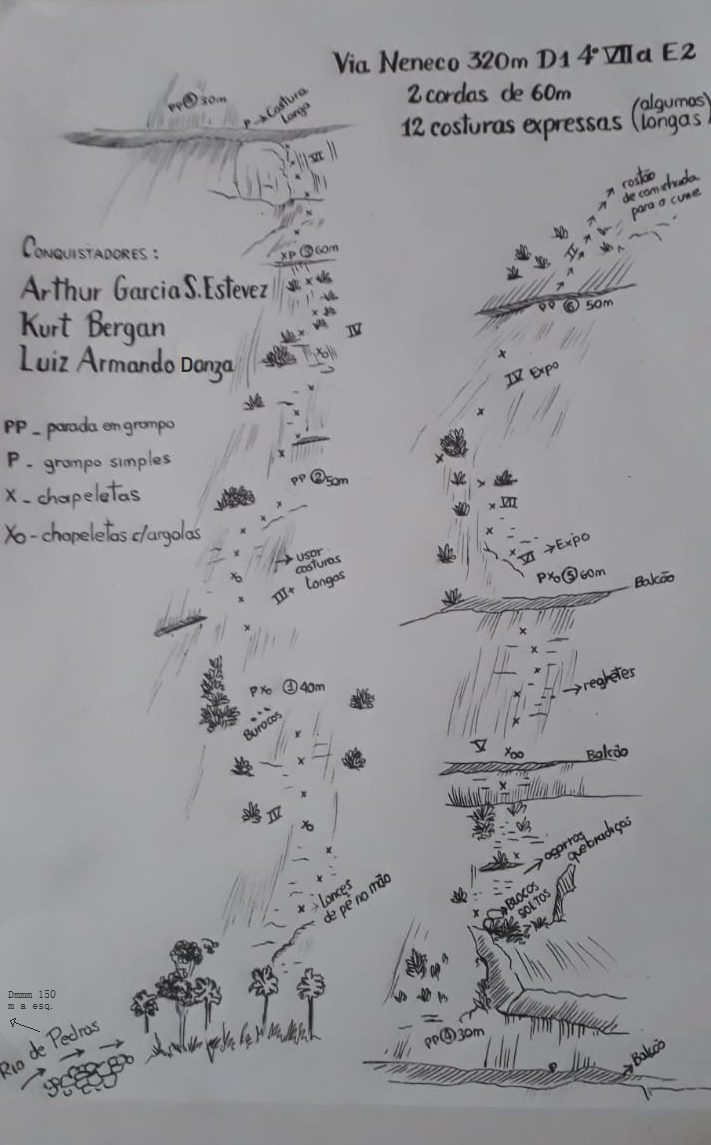 Via Neneco 320m D1 4º VIIa E2
2 cordas de 60m
12 costuras expressas (algumas longas)
PP ④ 30m
P → Costura
longa
VI
XP ③ 60m
CONQUISTADORES:
Arthur Garcia S. Estevez
Kurt Bergan
Luiz Armando Danza
IV
Xo
PP - parada em grampo
P - grampo simples
X - chapeletas
Xo - chapeletas c/argolas
PP ② 50m
→ usar
costuras
longas
III+
Xo
PXo ① 40m
Buracos
IV
Xo
→ Lances
de pé na mão
Dmmm 150
m a esq.
Rio de Pedras
costão
de caminhada
para o cume
II
PP ⑥ 50m
IV Expo
VII
VI → Expo
PXo ⑤ 60m
Balcão
→ regletes
V
Xoo
Balcão
agarras
quebradiças
BLOCOS
SOLTOS
PP ④ 30m
P
Balcão